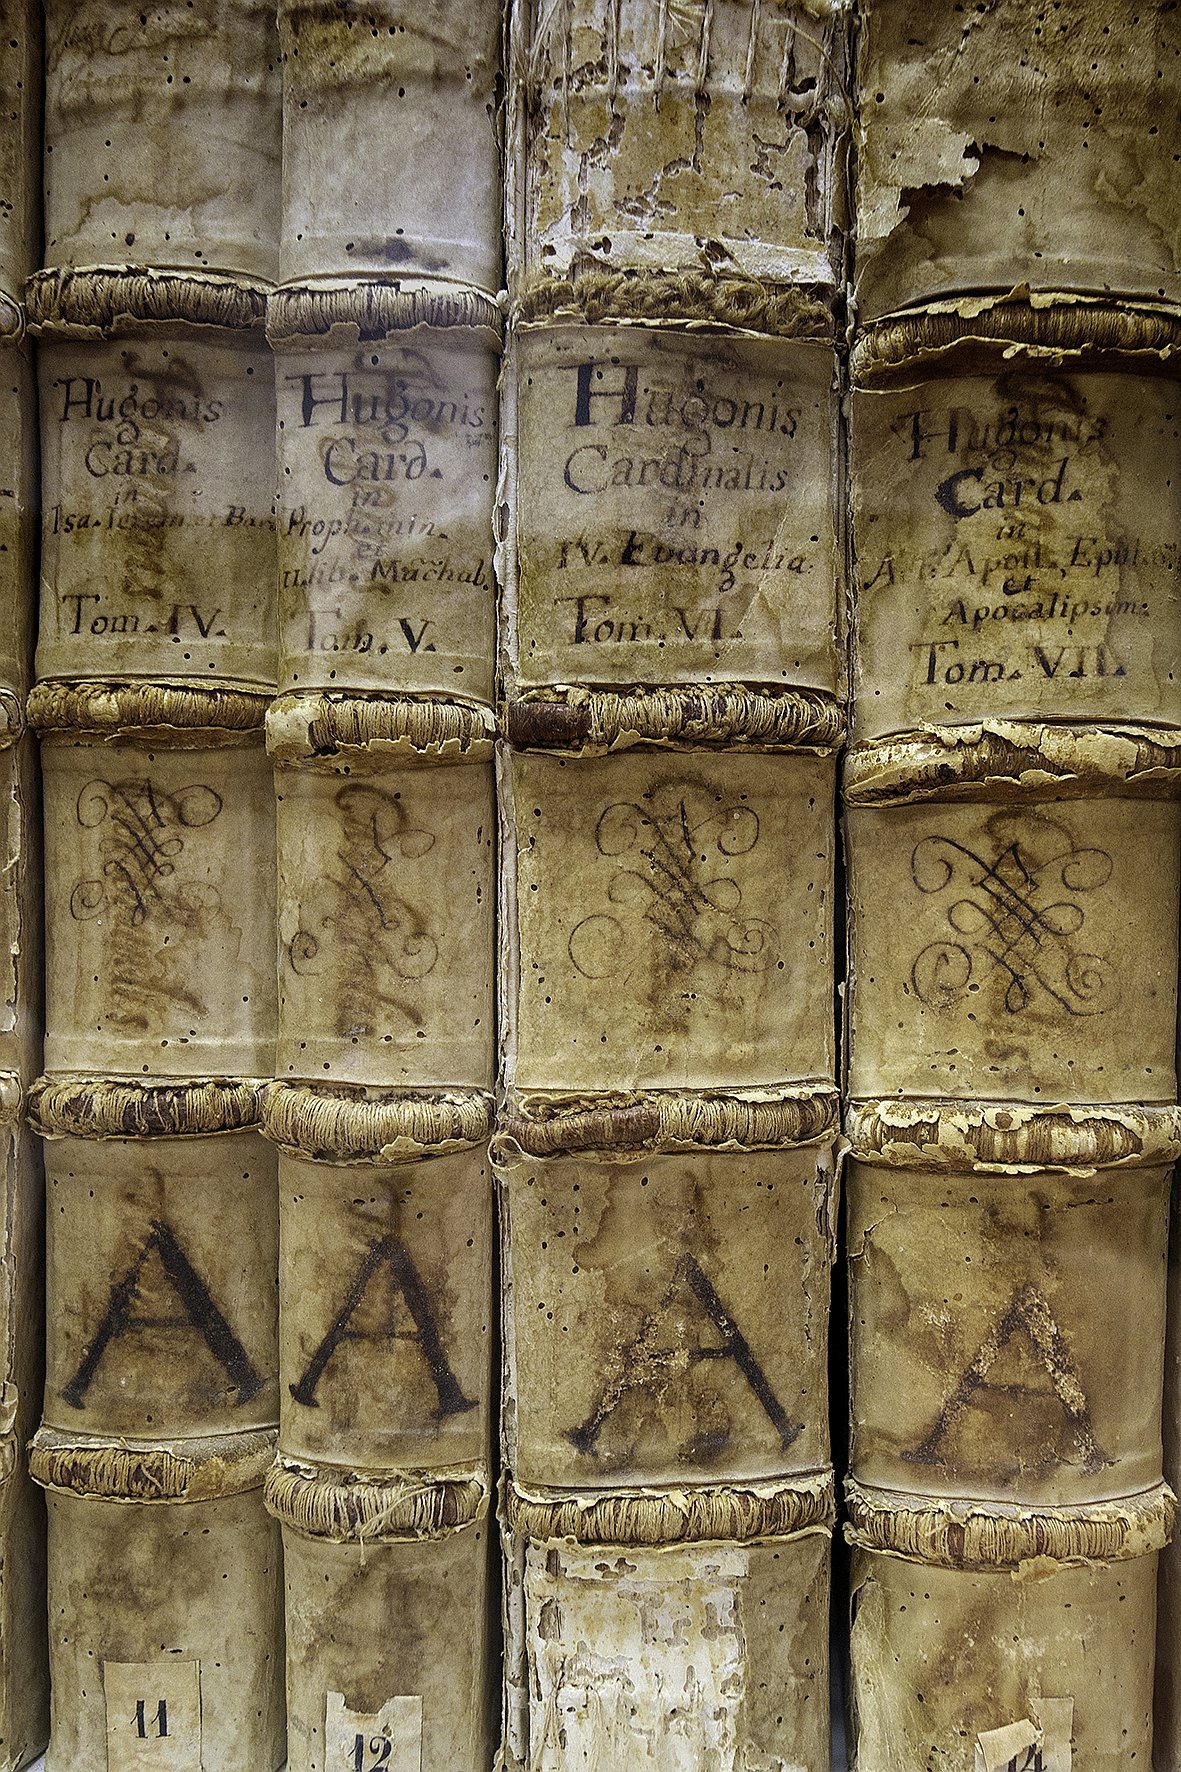 Hugonis
Card.
in
Isa. Ierem et Bar
Tom. IV.
A
11
Hugonis
Card.
in
Proph. min.
et
II. lib. Machab.
Tom. V.
A
12
Hugonis
Cardinalis
in
IV. Evangelia.
Tom. VI.
A
Hugonis
Card.
in
Apost. Epist.
et
Apocalipsim.
Tom. VII.
A
14